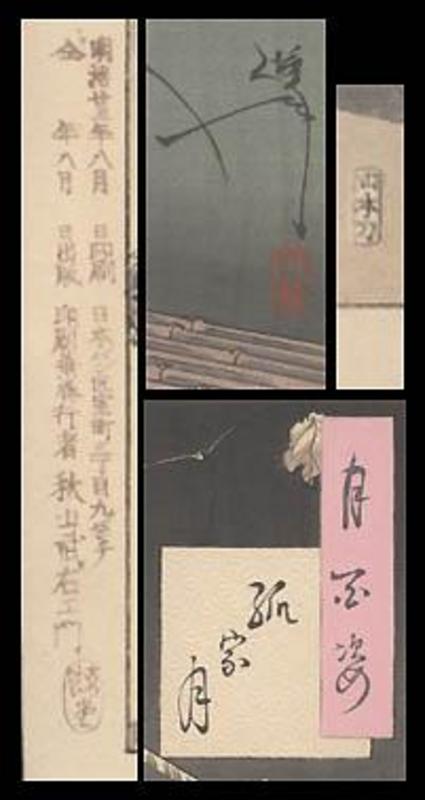 明治廿三年八月 日印刷 日本バシ区室町三丁目九番チ
仝 年八月 日出版 印刷兼發行者 秋山武右エ門
山本刀
月百姿
孤家月